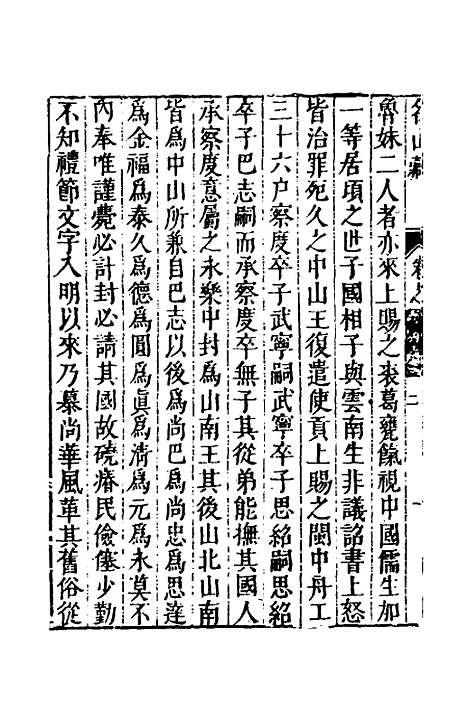 名山藏
魯妹二人者亦來上賜之裘葛甕餼視中國儒生加
一等居頃之世子國相子與雲南生非議詔書上怒
皆治罪死久之中山王復遣使貢上賜之閩中舟工
三十六户察度卒子武寧嗣武寧卒子思紹嗣思紹
卒子巴志嗣而承察度卒無子其從弟能撫其國人
承察度意屬之永樂中封爲山南王其後山北山南
皆爲中山所兼自巴志以後爲尚巴爲尚忠爲思達
爲金福爲泰久爲德爲圓爲眞爲清爲元爲永莫不
內奉唯謹薨必計封必請其國故磽瘠民儉僿少勤
不知禮節文字入明以來乃慕尚華風革其舊俗從